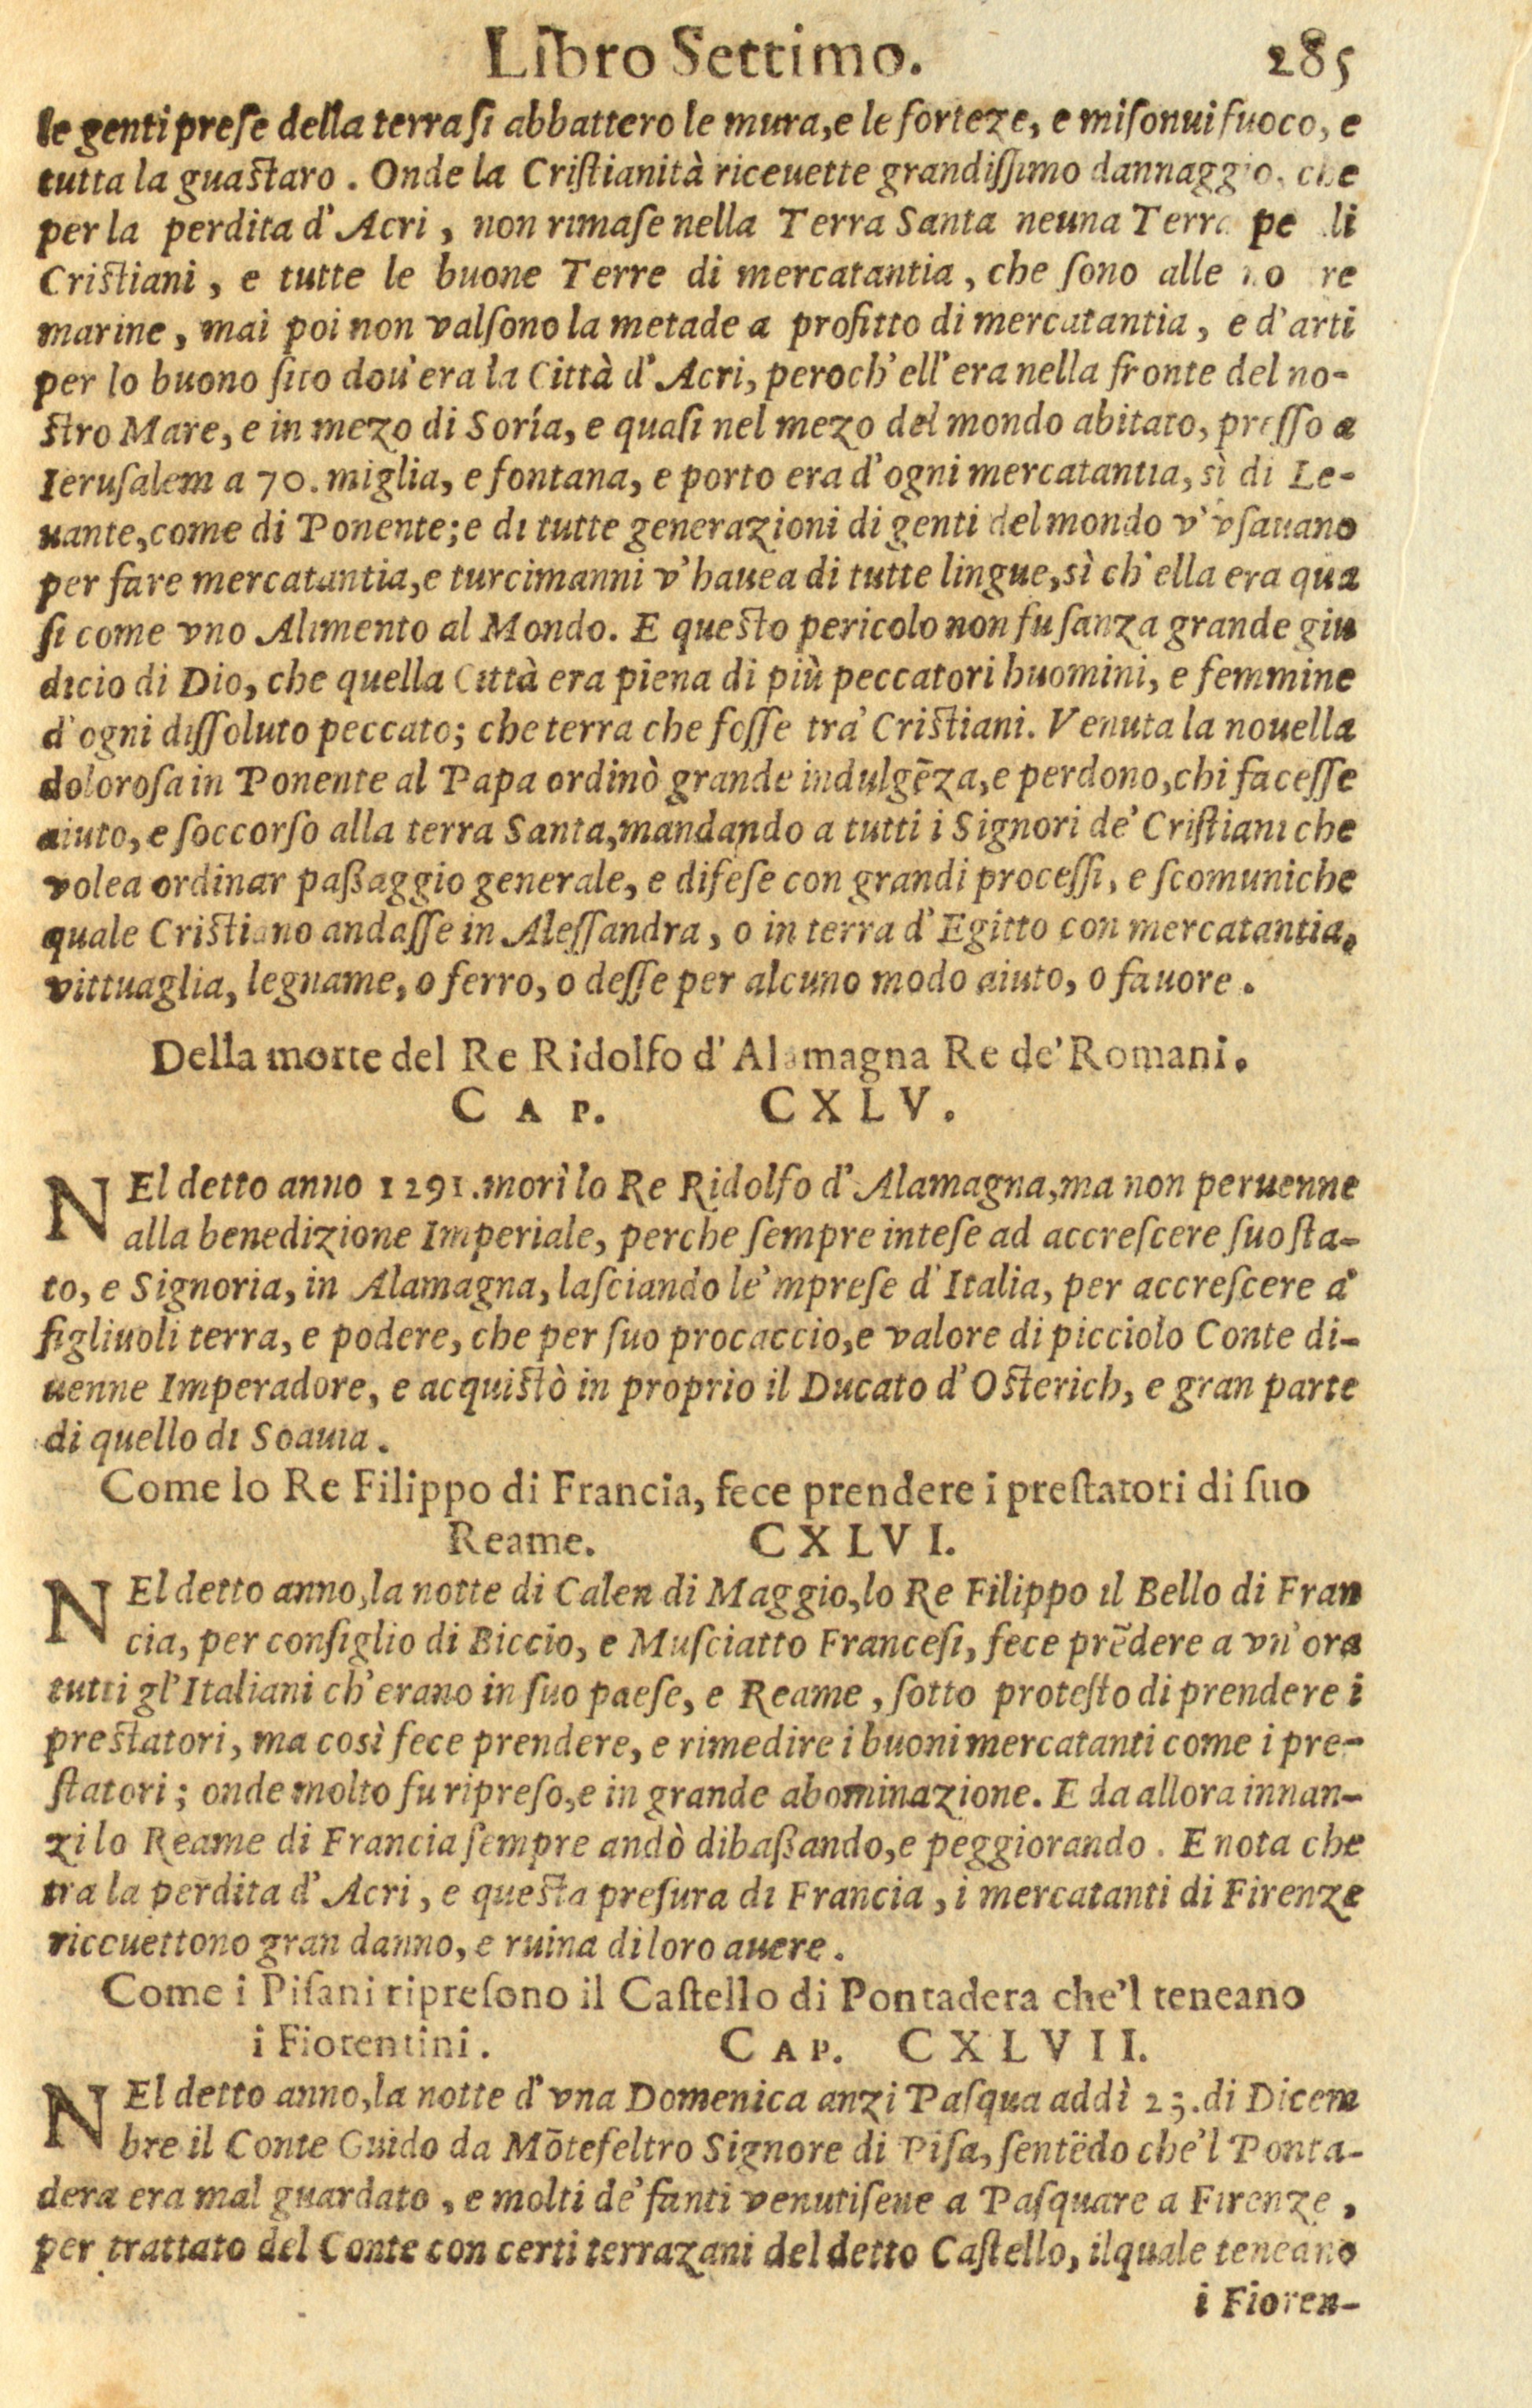 Libro Settimo. 285
le genti prese della terra si abbattero le mura, e le forteze, e misonui fuoco, e
tutta la guastaro. Onde la Cristianità riceuette grandissimo dannaggio, che
per la perdita d'Acri, non rimase nella Terra Santa neuna Terra pe li
Cristiani, e tutte le buone Terre di mercatantia, che sono alle
marine, mai poi non valsono la metade a profitto di mercatantia, e d'arti
per lo buono sito dou'era la Città d'Acri, peroch'ell'era nella fronte del no-
stro Mare, e in mezo di Soría, e quasi nel mezo del mondo abitato, presso a
Ierusalem a 70. miglia, e fontana, e porto era d'ogni mercatantia, sì di Le-
uante, come di Ponente; e di tutte generazioni di genti del mondo v'vsauano
per fare mercatantia, e turcimanni v'hauea di tutte lingue, sì ch'ella era qua
si come vno Alimento al Mondo. E questo pericolo non fu sanza grande giu
dicio di Dio, che quella Città era piena di più peccatori huomini, e femmine
d'ogni dissoluto peccato; che terra che fosse tra' Cristiani. Venuta la nouella
dolorosa in Ponente al Papa ordinò grande indulgēza, e perdono, chi facesse
aiuto, e soccorso alla terra Santa, mandando a tutti i Signori de' Cristiani che
volea ordinar paßaggio generale, e difese con grandi processi, e scomuniche
quale Cristiano andasse in Alessandra, o in terra d'Egitto con mercatantia,
vittuaglia, legname, o ferro, o desse per alcuno modo aiuto, o fauore.
Della morte del Re Ridolfo d'Alamagna Re de' Romani.
CAP. CXLV.
NEl detto anno 1291. morì lo Re Ridolfo d'Alamagna, ma non peruenne
alla benedizione Imperiale, perche sempre intese ad accrescere suo sta-
to, e Signoria, in Alamagna, lasciando le'mprese d'Italia, per accrescere a'
figliuoli terra, e podere, che per suo procaccio, e valore di picciolo Conte di-
uenne Imperadore, e acquistò in proprio il Ducato d'Osterich, e gran parte
di quello di Soauia.
Come lo Re Filippo di Francia, fece prendere i prestatori di suo
Reame. CXLVI.
NEl detto anno, la notte di Calen di Maggio, lo Re Filippo il Bello di Fran
cia, per consiglio di Biccio, e Musciatto Francesi, fece prēdere a vn'ora
tutti gl'Italiani ch'erano in suo paese, e Reame, sotto protesto di prendere i
prestatori, ma così fece prendere, e rimedire i buoni mercatanti come i pre-
statori; onde molto fu ripreso, e in grande abominazione. E da allora innan-
zi lo Reame di Francia sempre andò dibaßando, e peggiorando. E nota che
tra la perdita d'Acri, e questa presura di Francia, i mercatanti di Firenze
riceuettono gran danno, e ruina di loro auere.
Come i Pisani ripresono il Castello di Pontadera che'l teneano
i Fiorentini. CAP. CXLVII.
NEl detto anno, la notte d'vna Domenica anzi Pasqua addì 23. di Dicem
bre il Conte Guido da Mōtefeltro Signore di Pisa, sentēdo che'l Ponta-
dera era mal guardato, e molti de' fanti venutisene a Pasquare a Firenze,
per trattato del Conte con certi terrazani del detto Castello, ilquale teneano
i Fioren-